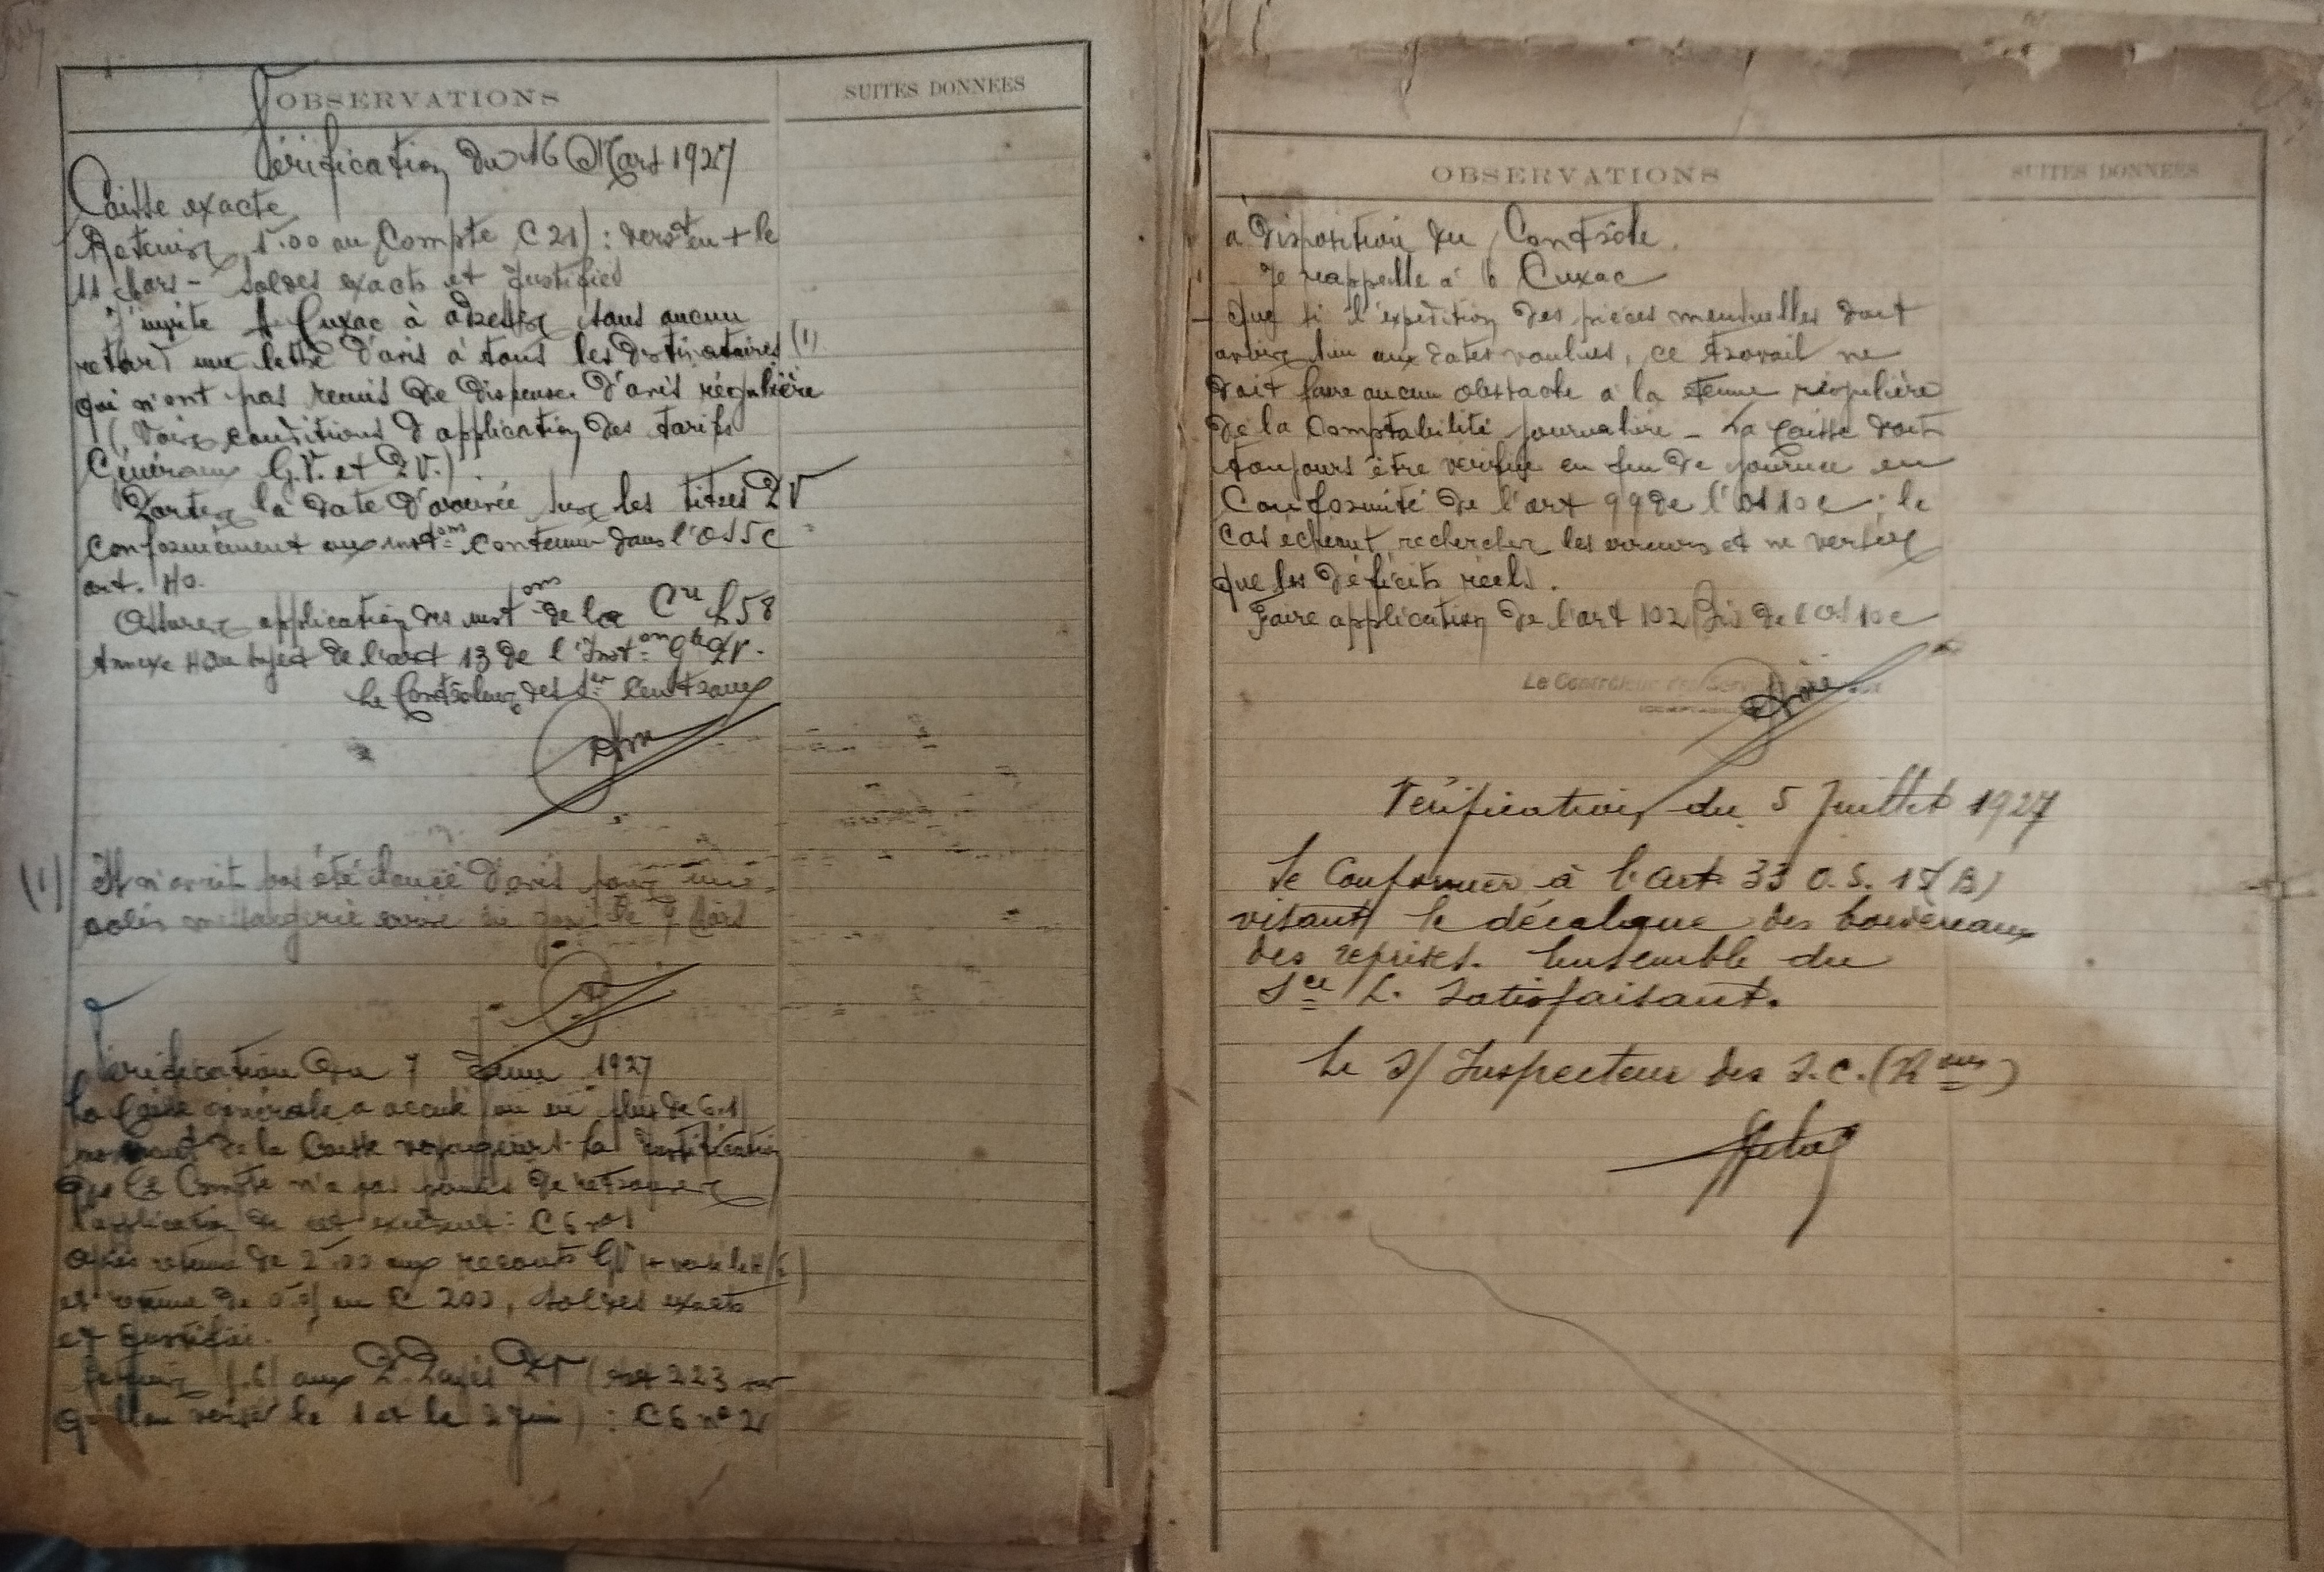 OBSERVATIONS
SUITES DONNÉES
Vérification du 16 Mars 1927
Caisse exacte
Retenir 1.00 au Compte C 21) : vers en + le
11 Mars - Soldes exacts et justifiés
J'invite Cuxac à adresser sans aucun
retard une lettre d'avis à tous les destinataires (1)
qui n'ont pas remis de dispense d'avis régulière
(Voir conditions d'application des tarifs
Généraux G.V. et P.V.)
Porter la date d'arrivée sur les titres PV
Conformément aux inst.ons contenues dans l'OS 5c
art. 40.
Assurer application des inst.ons de la C.re 58
Annexe 4 au sujet de l'art 13 de l'Inst.on G.le PV.
Le Contrôleur des S.ces Centraux
(1) Il n'avait pas été lancé d'avis pour un
colis messagerie arrivé en gare le 9 Mars
Vérification du 7 Juin 1927
La Caisse générale a accusé en plus de 6.
de la Caisse voyageurs. La justification
de ce Compte n'a pas permis de retrouver
l'application de cet excédent : C6 n° 1
Après retenue de 2.00 aux GV
et retenue de en C 200, soldes exacts
et justifiés.
Retenir aux P. Payés PV 223
versé le 1 et le 2 juin) : C6 n° 2
OBSERVATIONS
SUITES DONNÉES
à disposition du Contrôle.
Je rappelle à Cuxac
- que si l'expédition des pièces mensuelles doit
avoir lieu aux dates voulues, ce travail ne
doit faire aucun obstacle à la tenue régulière
de la Comptabilité journalière - La Caisse doit
toujours être vérifiée en fin de journée en
Conformité de l'art 99 de l'OS 10c ; le
cas échéant rechercher les erreurs et ne verser
que les déficits réels.
Faire application de l'art 102 bis de l'OS 10c
Le Contrôleur des Serv
Vérification du 5 Juillet 1927
Se conformer à l'art 33 O.S. 15 (B)
visant le décalque des bordereaux
des reprises. Ensemble du
S.ce L. satisfaisant.
Le S/ Inspecteur des S.C. (R.ons)